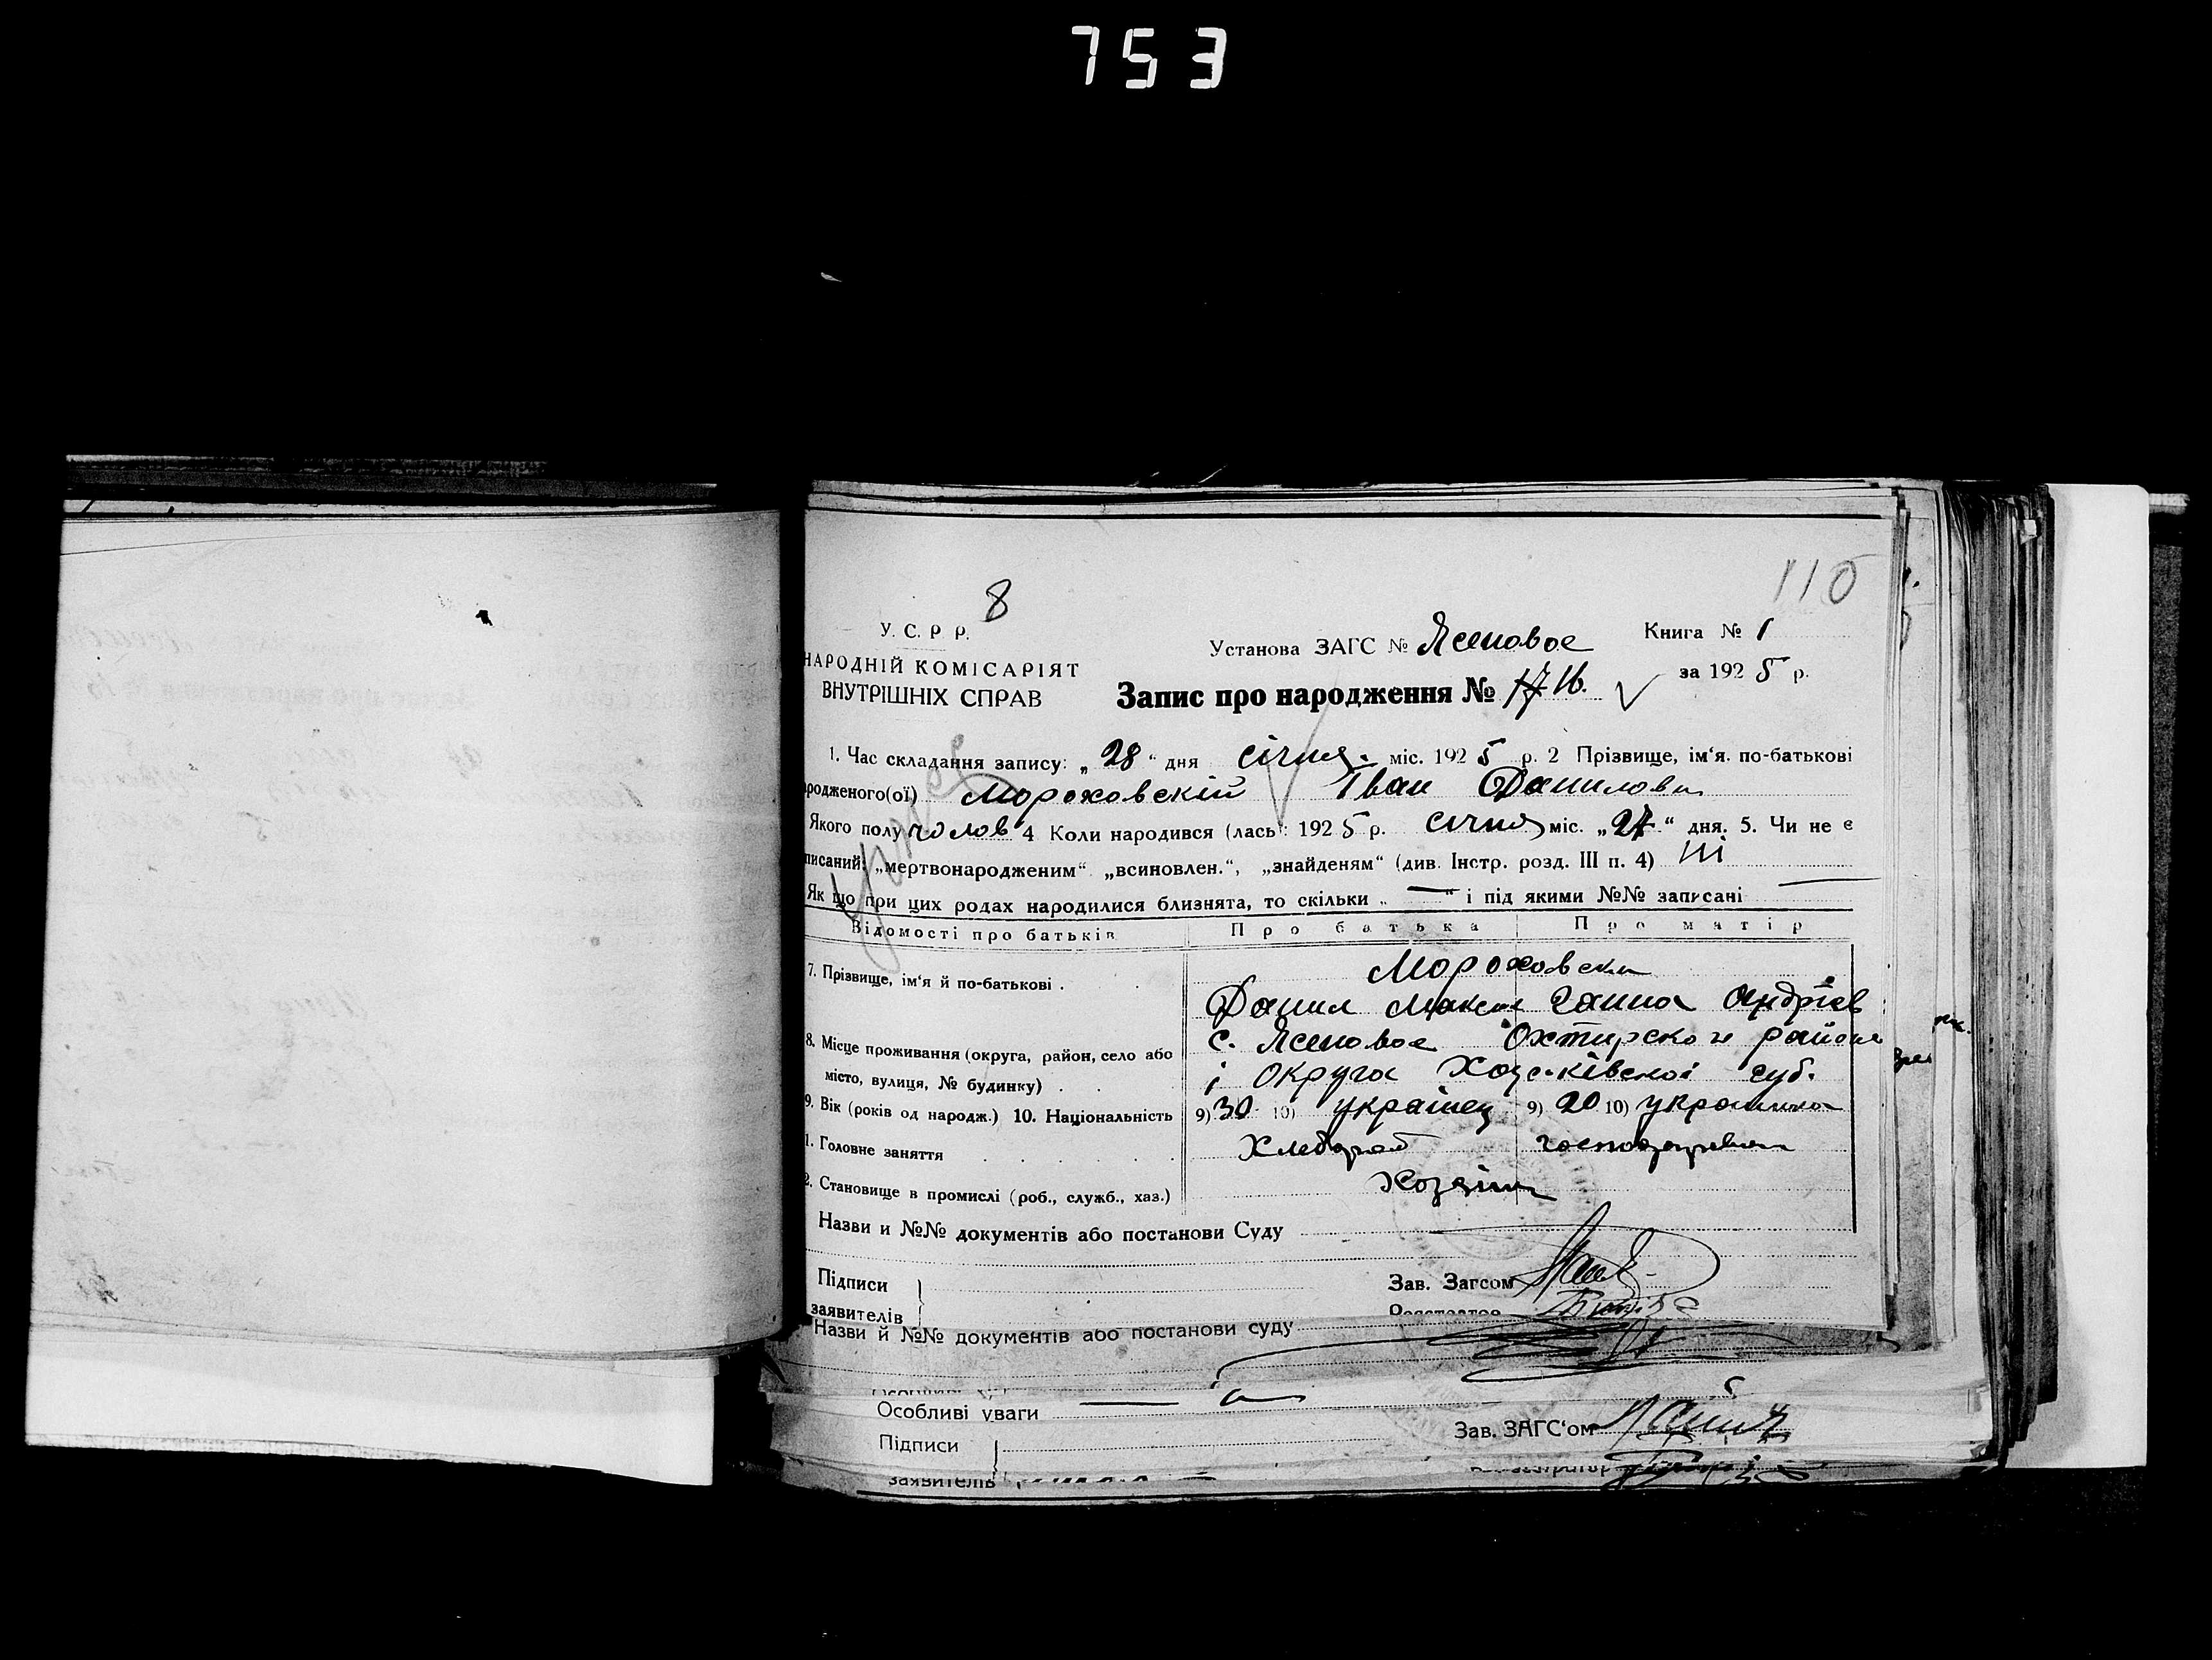 753
110
8
У. С. Р. Р.
НАРОДНІЙ КОМІСАРІЯТ
ВНУТРІШНІХ СПРАВ
Установа ЗАГС № Ясеновое
Книга № 1
за 1925 р.
Запис про народження № 16.
1. Час складання запису: „28“ дня січня. міс. 1925 р. 2 Прізвище, ім‘я. по-батькові
родженого(ої) Мороховскій Іван Данилови
Якого полу чолов 4 Коли народився (лась): 1925 р. січня міс. „27“ дня. 5. Чи не є
писаний: „мертвонародженим“ „всиновлен.“, „знайденям“ (див. Інстр. розд. III п. 4) Ні
Як що при цих родах народилися близнята, то скільки „—“ і під якими №№ записані —
Відомості про батьків Про батька Про матір
7. Прізвище, ім‘я й по-батькові . Мороховски
Данил Максим Ганна Андрієв
8. Місце проживання (округа, район, село або с. Ясеновое Охтирского района
місто, вулиця, № будинку) . . і Округа Харківскої губ.
9. Вік (років од народж.) 10. Національність 9) 30 10) українец 9) 20 10) украинка
1. Головне заняття Хлебороб
2. Становище в промислі (роб., служб., хаз.) Хозяіин
Назви и №№ документів або постанови Суду
Підписи
заявителів
Зав. Загсом
Реєстратор
Назви й №№ документів або постанови суду
Особливі уваги —
Підписи
Зав. ЗАГС‘ом
заявителів